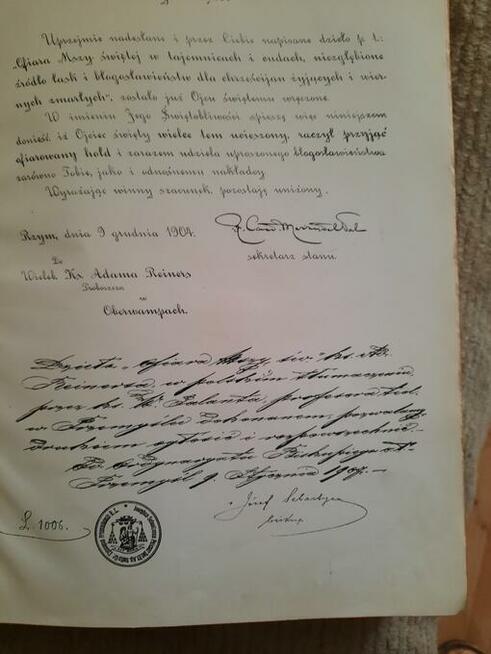 Uprzejmie nadesłane i przez Ciebie napisane dzieło p. t.:
„Ofiara Mszy świętej w tajemnicach i cudach, niezgłębione
źródło łask i błogosławieństw dla chrześcijan żyjących i wier-
nych zmarłych", zostało już Ojcu świętemu wręczone.
W imieniu Jego Świętobliwości spieszę więc niniejszem
donieść, iż Ojciec święty wielce tem ucieszony, raczył przyjąć
ofiarowany hołd i zarazem udziela uproszonego błogosławieństwa
zarówno Tobie, jako i odnośnemu nakładcy.
Wyrażając winny szacunek, pozostaję uniżony.
Rzym, dnia 9 grudnia 1904.
R. Card. Merry del Val
sekretarz stanu.
Do
Wieleb. Kx Adama Reiners
Proboszcza
w
Oberwampach.
Dzieło „Ofiara Mszy św." ks. A.
Reinersa, w polskiem tłumaczeniu
przez ks. W. Galanta, profesora teol.
w Przemyślu dokonanem, pozwalamy
drukiem ogłosić i rozpowszechniać.
Od Ordynaryatu Biskupiego o. ł.
Przemyśl 9. Stycznia 1907.
Józef Sebastyan
biskup
L. 1006.